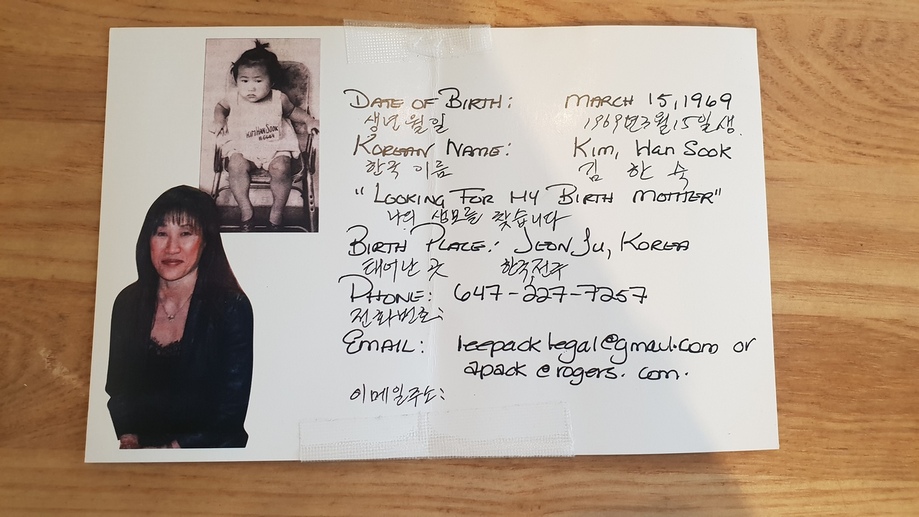 DATE OF BIRTH: MARCH 15, 1969
생년월일 1969년 3월 15일생.
KOREAN NAME: Kim, Han Sook
한국 이름 김 한 숙
"LOOKING FOR MY BIRTH MOTHER"
나의 생모를 찾습니다
BIRTH PLACE: JEONJU, KOREA
태어난 곳 한국전주
PHONE: 647-227-7257
전화번호:
EMAIL: leepacklegal@gmail.com or
apack@rogers.com.
이메일주소: